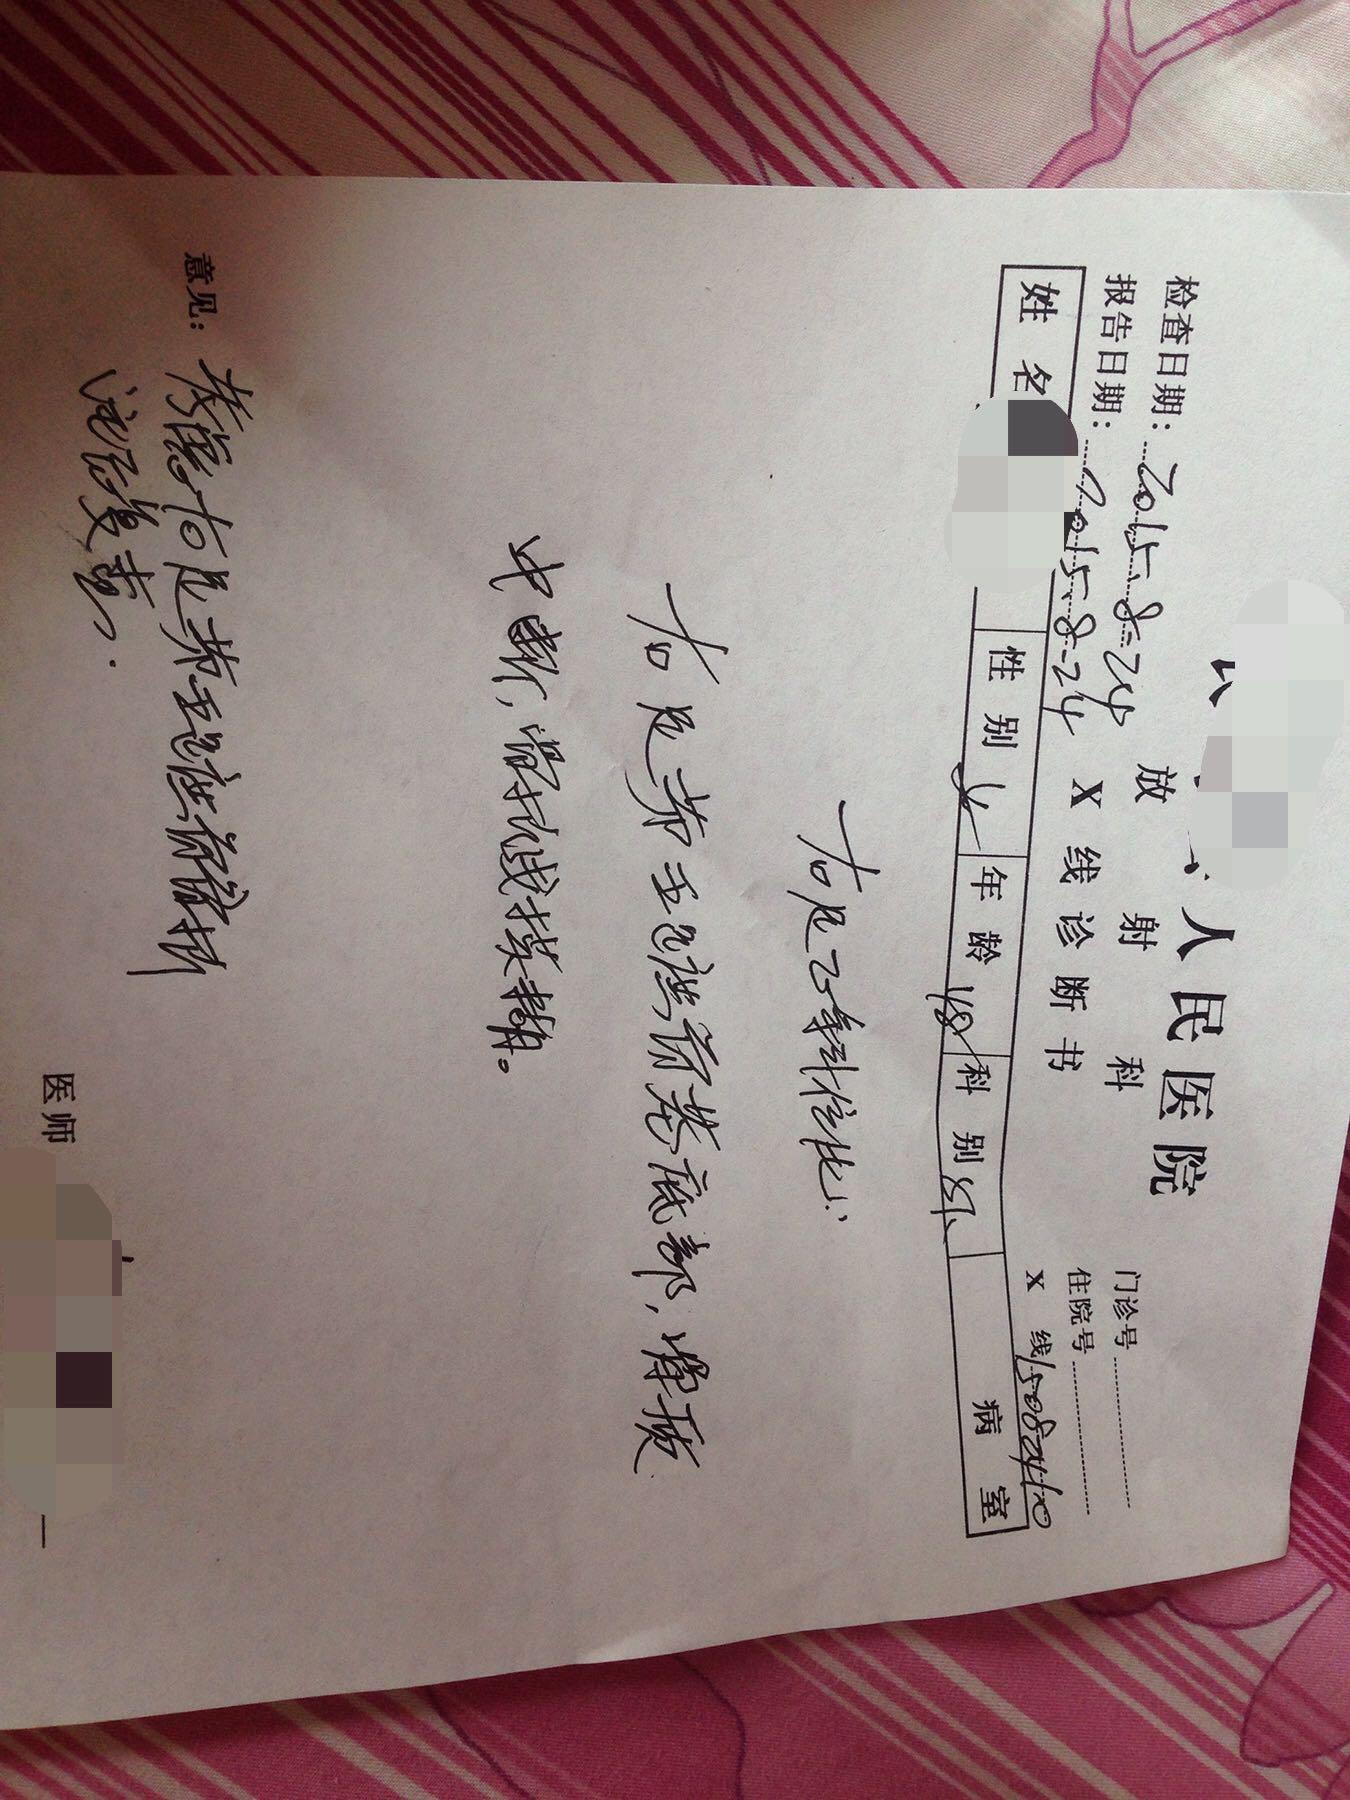 人民医院
放射科
X线诊断书
检查日期：2015-8-24
报告日期：2015-8-24
门诊号
住院号
X 线15082420
姓名 性别 女 年龄 48 科别 外 病室
右足正斜位片：
右足第五跖骨基底部，骨质
中断，骨折线模糊。
意见：考虑右足第五跖骨骨折
治疗后复查。
医师